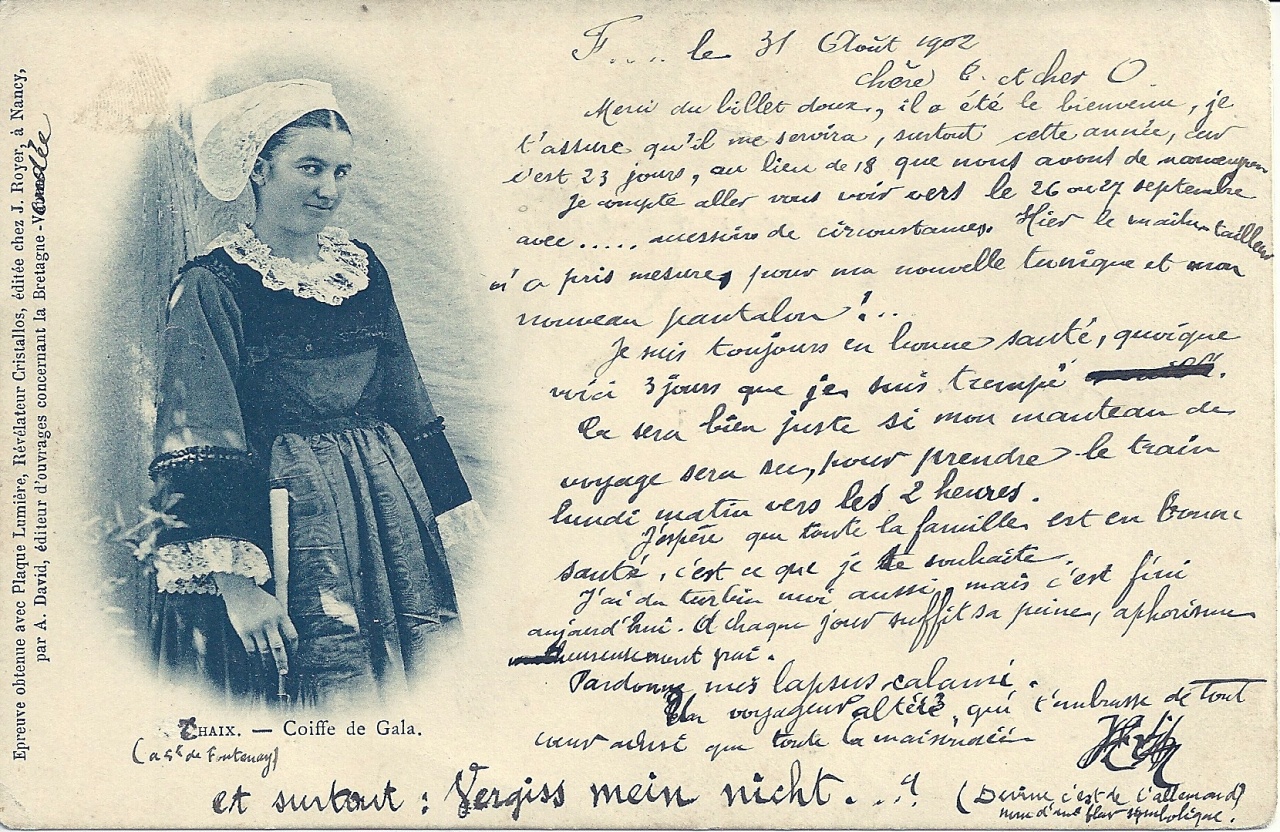 Epreuve obtenue avec Plaque Lumière, Révélateur Cristallos, éditée chez J. Royer, à Nancy,
par A. David, éditeur d'ouvrages concernant la Bretagne - Vendée
CHAIX. — Coiffe de Gala.
(a St de Fontenay)
F..... le 31 Août 1902
chère C. et cher O
Merci du billet doux, il a été le bienvenu, je
t'assure qu'il me servira, surtout cette année, car
c'est 23 jours, au lieu de 18 que nous avons de
Je compte aller vous voir vers le 26 ou 27 septembre
avec ..... accessoire de circonstances. Hier le maître-tailleur
m'a pris mesure, pour ma nouvelle tunique et mon
nouveau pantalon !...
Je suis toujours en bonne santé, quoique
voici 3 jours que je suis trempé
Ça sera bien juste si mon manteau de
voyage sera sec, pour prendre le train
lundi matin vers les 2 heures.
J'espère que toute la famille est en bonne
santé, c'est ce que je te souhaite.
J'ai du turbin moi aussi, mais c'est fini
aujourd'hui. A chaque jour suffit sa peine, aphorisme
heureusement vrai.
Pardonne mes lapsus calami.
Un voyageur altéré, qui t'embrasse de tout
cœur ainsi que toute la maisonnée
et surtout : Vergiss mein nicht...!
(Devine c'est de l'allemand)
nom d'une fleur symbolique.